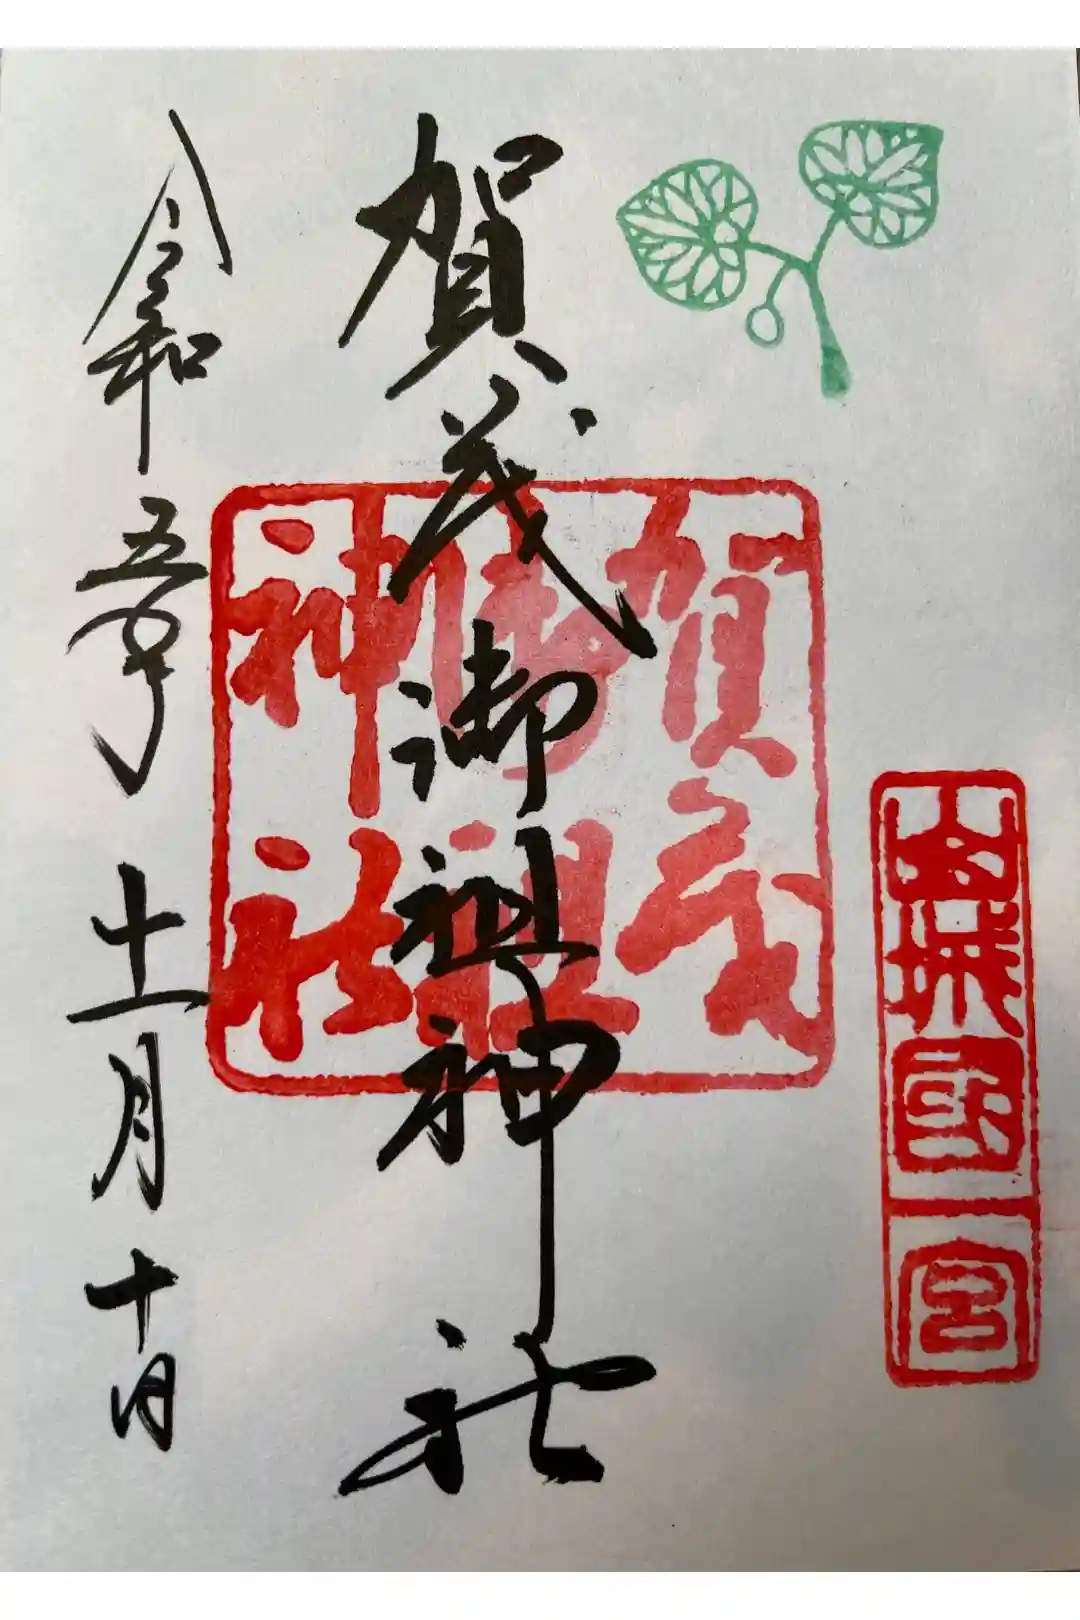 山城國一宮
賀茂御祖神社
賀茂
御祖
神社
令和五年十一月十日